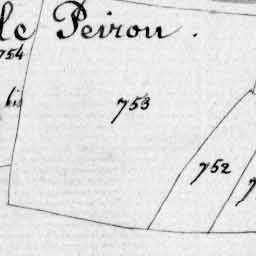 le Peirou.
754
bis
753
752